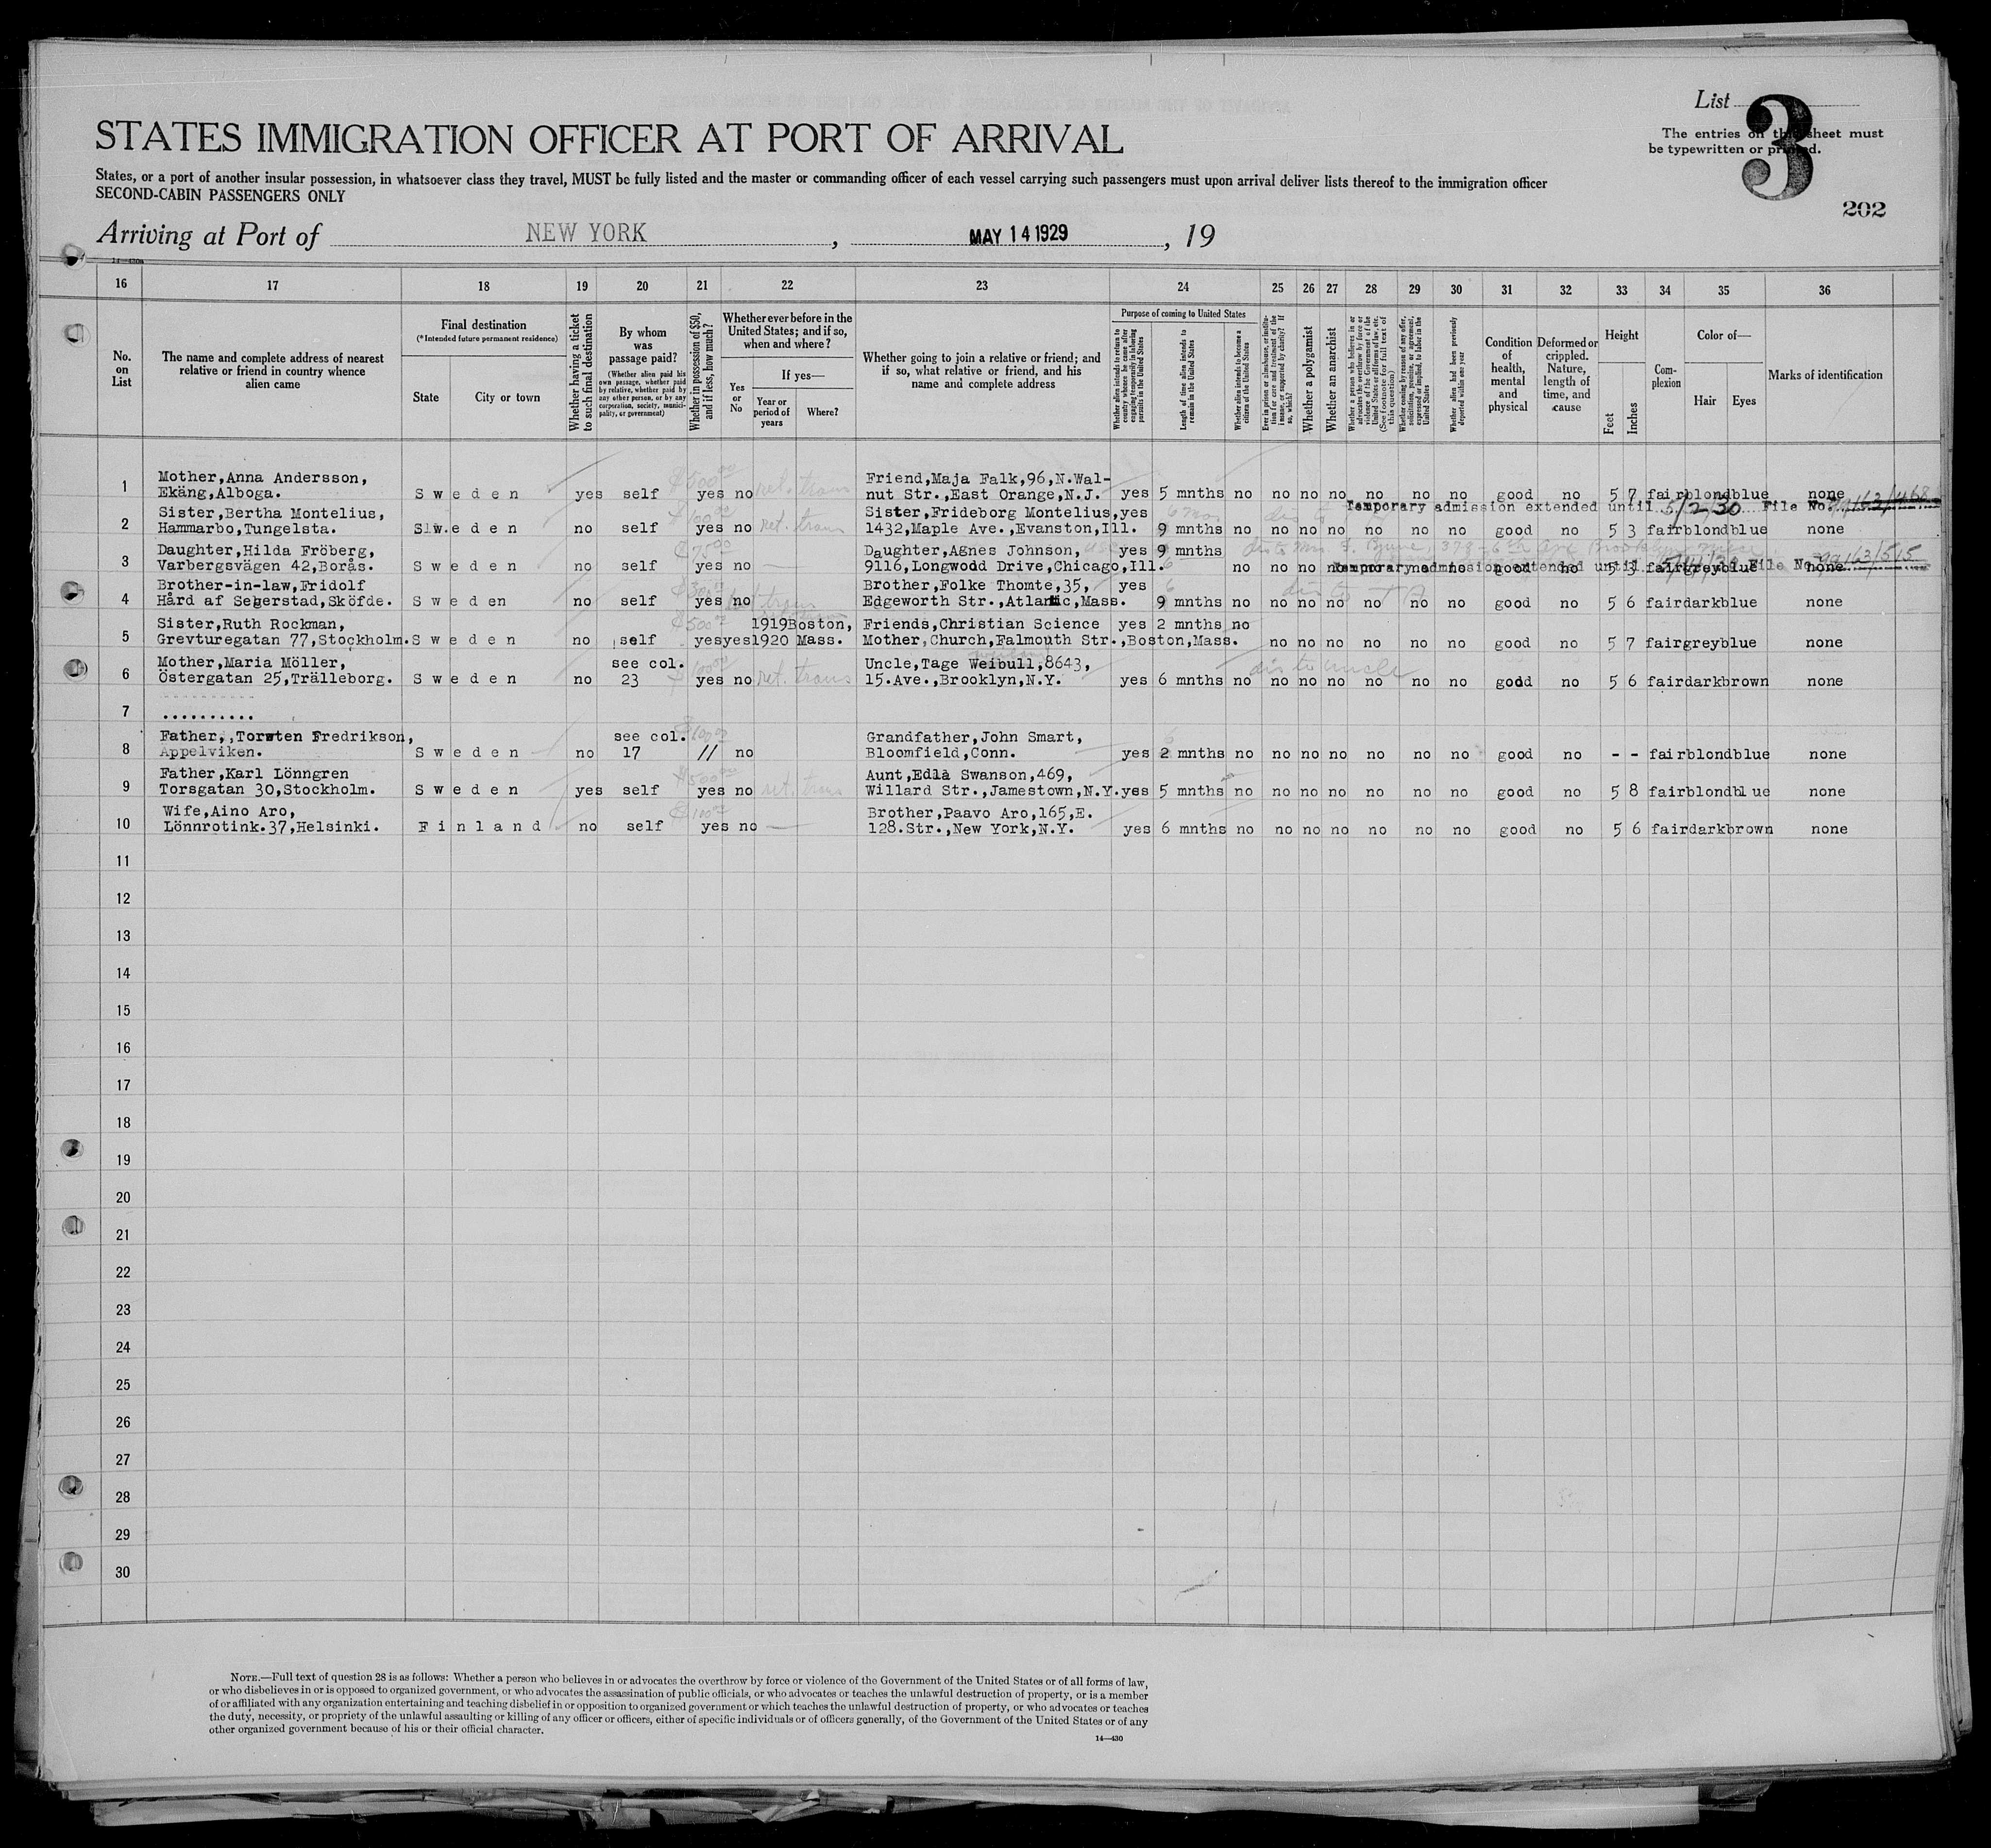 List 3
The entries on this sheet must
be typewritten or printed.
STATES IMMIGRATION OFFICER AT PORT OF ARRIVAL
States, or a port of another insular possession, in whatsoever class they travel, MUST be fully listed and the master or commanding officer of each vessel carrying such passengers must upon arrival deliver lists thereof to the immigration officer
SECOND-CABIN PASSENGERS ONLY
202
Arriving at Port of NEW YORK, MAY 14 1929, 19
16 17 18 19 20 21 22 23 24 25 26 27 28 29 30 31 32 33 34 35 36
No. on List
The name and complete address of nearest relative or friend in country whence alien came
Final destination
(*Intended future permanent residence)
State
City or town
Whether having a ticket to such final destination
By whom was passage paid?
(Whether alien paid his own passage, whether paid by relative, whether paid by any other person, or by any corporation, society, municipality, or government)
Whether in possession of $50, and if less, how much?
Whether ever before in the United States; and if so, when and where?
Yes or No
If yes—
Year or period of years
Where?
Whether going to join a relative or friend; and if so, what relative or friend, and his name and complete address
Purpose of coming to United States
Whether alien intends to return to country whence he came after engaging temporarily in laboring pursuits in the United States
Length of time alien intends to remain in the United States
Whether alien intends to become a citizen of the United States
Ever in prison or almshouse, or institution for care and treatment of the insane, or supported by charity? If so, which?
Whether a polygamist
Whether an anarchist
Whether a person who believes in or advocates the overthrow by force or violence of the Government of the United States or all forms of law, etc. (See footnote for full text of this question)
Whether coming by reason of any offer, solicitation, promise, or agreement, expressed or implied, to labor in the United States
Whether alien had been previously deported within one year
Condition of health, mental and physical
Deformed or crippled. Nature, length of time, and cause
Height
Feet
Inches
Complexion
Color of—
Hair
Eyes
Marks of identification
1 Mother,Anna Andersson,
Ekäng,Alboga. Sweden yes self yes no ret. trans
Friend,Maja Falk,96,N.Wal-
nut Str.,East Orange,N.J. yes 5 mnths no no no no no no no good no 5 7 fair blond blue none
Temporary admission extended until 5/2/30 File No.
2 Sister,Bertha Montelius,
Hammarbo,Tungelsta. Sweden no self yes no ret. trans
Sister,Frideborg Montelius,yes
1432,Maple Ave.,Evanston,Ill. 9 mnths no no no no no no no good no 5 3 fair blond blue none
3 Daughter,Hilda Fröberg,
Varbergsvägen 42,Borås. Sweden no self yes no
Daughter,Agnes Johnson, yes 9 mnths
9116,Longwodd Drive,Chicago,Ill. no no no no no no no good no 5 3 fair grey blue none
Temporary admission extended until File No.
4 Brother-in-law,Fridolf
Hård af Segerstad,Sköfde. Sweden no self yes no
Brother,Folke Thomte,35, yes
Edgeworth Str.,Atlantic,Mass. 9 mnths no no no no no no no good no 5 6 fair dark blue none
5 Sister,Ruth Rockman,
Grevturegatan 77,Stockholm. Sweden no self yes yes 1919 Boston,
1920 Mass.
Friends,Christian Science yes 2 mnths no
Mother,Church,Falmouth Str.,Boston,Mass. no no no no no no good no 5 7 fair grey blue none
6 Mother,Maria Möller,
Östergatan 25,Trälleborg. Sweden no see col. 23 yes no ret. trans
Uncle,Tage Weibull,8643, dis to uncle
15.Ave.,Brooklyn,N.Y. yes 6 mnths no no no no no no no good no 5 6 fair dark brown none
7 ..........
8 Father,,Torsten Fredrikson,
Appelviken. Sweden no see col. 17 // no
Grandfather,John Smart,
Bloomfield,Conn. yes 2 mnths no no no no no no no good no - - fair blond blue none
9 Father,Karl Lönngren
Torsgatan 30,Stockholm. Sweden yes self yes no ret. trans
Aunt,Edla Swanson,469,
Willard Str.,Jamestown,N.Y. yes 5 mnths no no no no no no no good no 5 8 fair blond blue none
10 Wife,Aino Aro,
Lönnrotink.37,Helsinki. Finland no self yes no
Brother,Paavo Aro,165,E.
128.Str.,New York,N.Y. yes 6 mnths no no no no no no no good no 5 6 fair dark brown none
11
12
13
14
15
16
17
18
19
20
21
22
23
24
25
26
27
28
29
30
NOTE.—Full text of question 28 is as follows: Whether a person who believes in or advocates the overthrow by force or violence of the Government of the United States or of all forms of law,
or who disbelieves in or is opposed to organized government, or who advocates the assassination of public officials, or who advocates or teaches the unlawful destruction of property, or is a member
of or affiliated with any organization entertaining and teaching disbelief in or opposition to organized government or which teaches the unlawful destruction of property, or who advocates or teaches
the duty, necessity, or propriety of the unlawful assaulting or killing of any officer or officers, either of specific individuals or of officers generally, of the Government of the United States or of any
other organized government because of his or their official character.
14—430